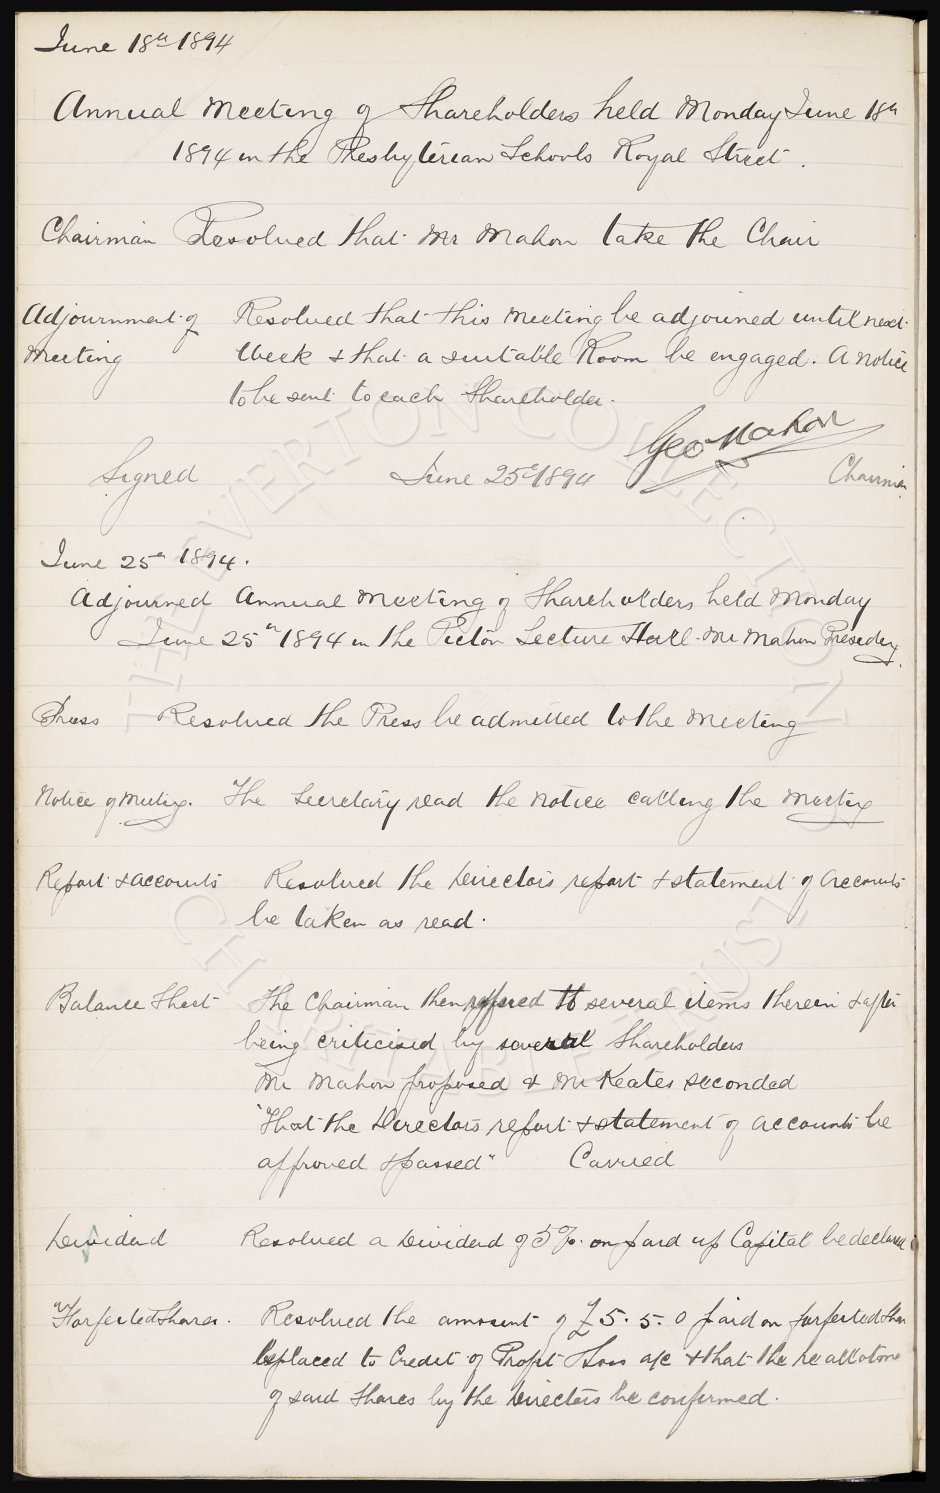 June 18th 1894
Annual Meeting of Shareholders held Monday June 18th
1894 in the Presbyterian Schools Royal Street.
Chairman Resolved that Mr Mahon take the Chair
Adjournment of Resolved that this Meeting be adjourned until next
Meeting Week & that a suitable Room be engaged. A notice
to be sent to each Shareholder.
Geo Mahon
Signed June 25th 1894 Chairman
June 25th 1894.
Adjourned Annual Meeting of Shareholders held Monday
June 25th 1894 in the Picton Lecture Hall. Mr Mahon Presiding.
Press Resolved the Press be admitted to the Meeting
Notice of Meeting. The Secretary read the notice calling the Meeting
Report & accounts Resolved the Directors report & statement of accounts
be taken as read.
Balance Sheet The Chairman then referred to several items therein & after
being criticised by several Shareholders
Mr Mahon proposed & Mr Keates seconded
"That the Directors report & statement of accounts be
approved & passed" Carried
Dividend Resolved a Dividend of 5% on paid up Capital be declared
Forfeited Shares. Resolved the amount of £5.5.0 paid on forfeited Shares
be placed to Credit of Profit & Loss a/c & that the re allotment
of said Shares by the Directors be confirmed.
THE EVERTON COLLECTION
CHARITABLE TRUST